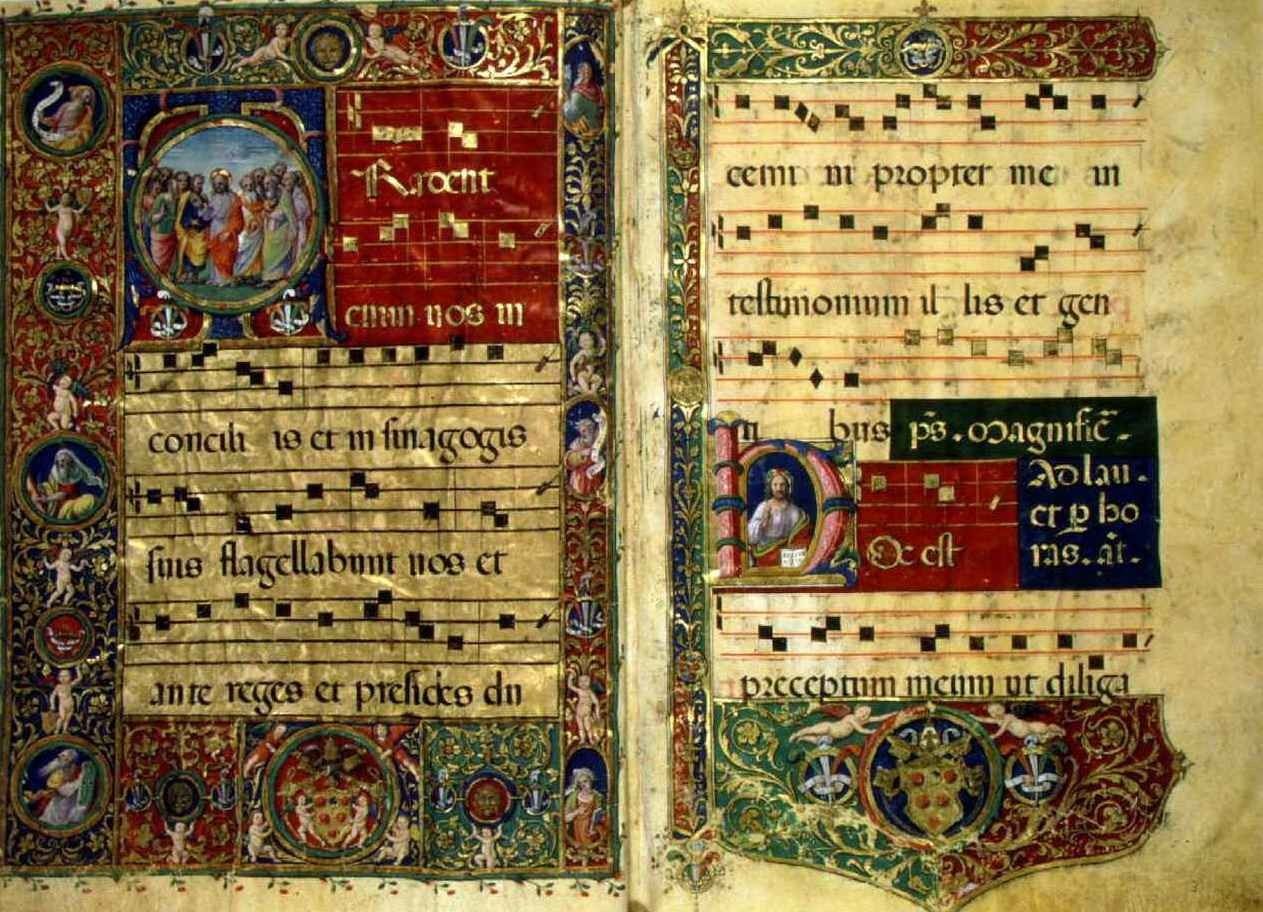 Radent
enim vos in
concili is et in sinagogis
suis flagellabunt vos et
ante reges et presides du
cemi ni propter me in
testimonium il lis et gen
ti bus ps. Magnific̄.
Ad lau.
et p̱ ho
ras. añ.
Oc est
preceptum meum ut diliga